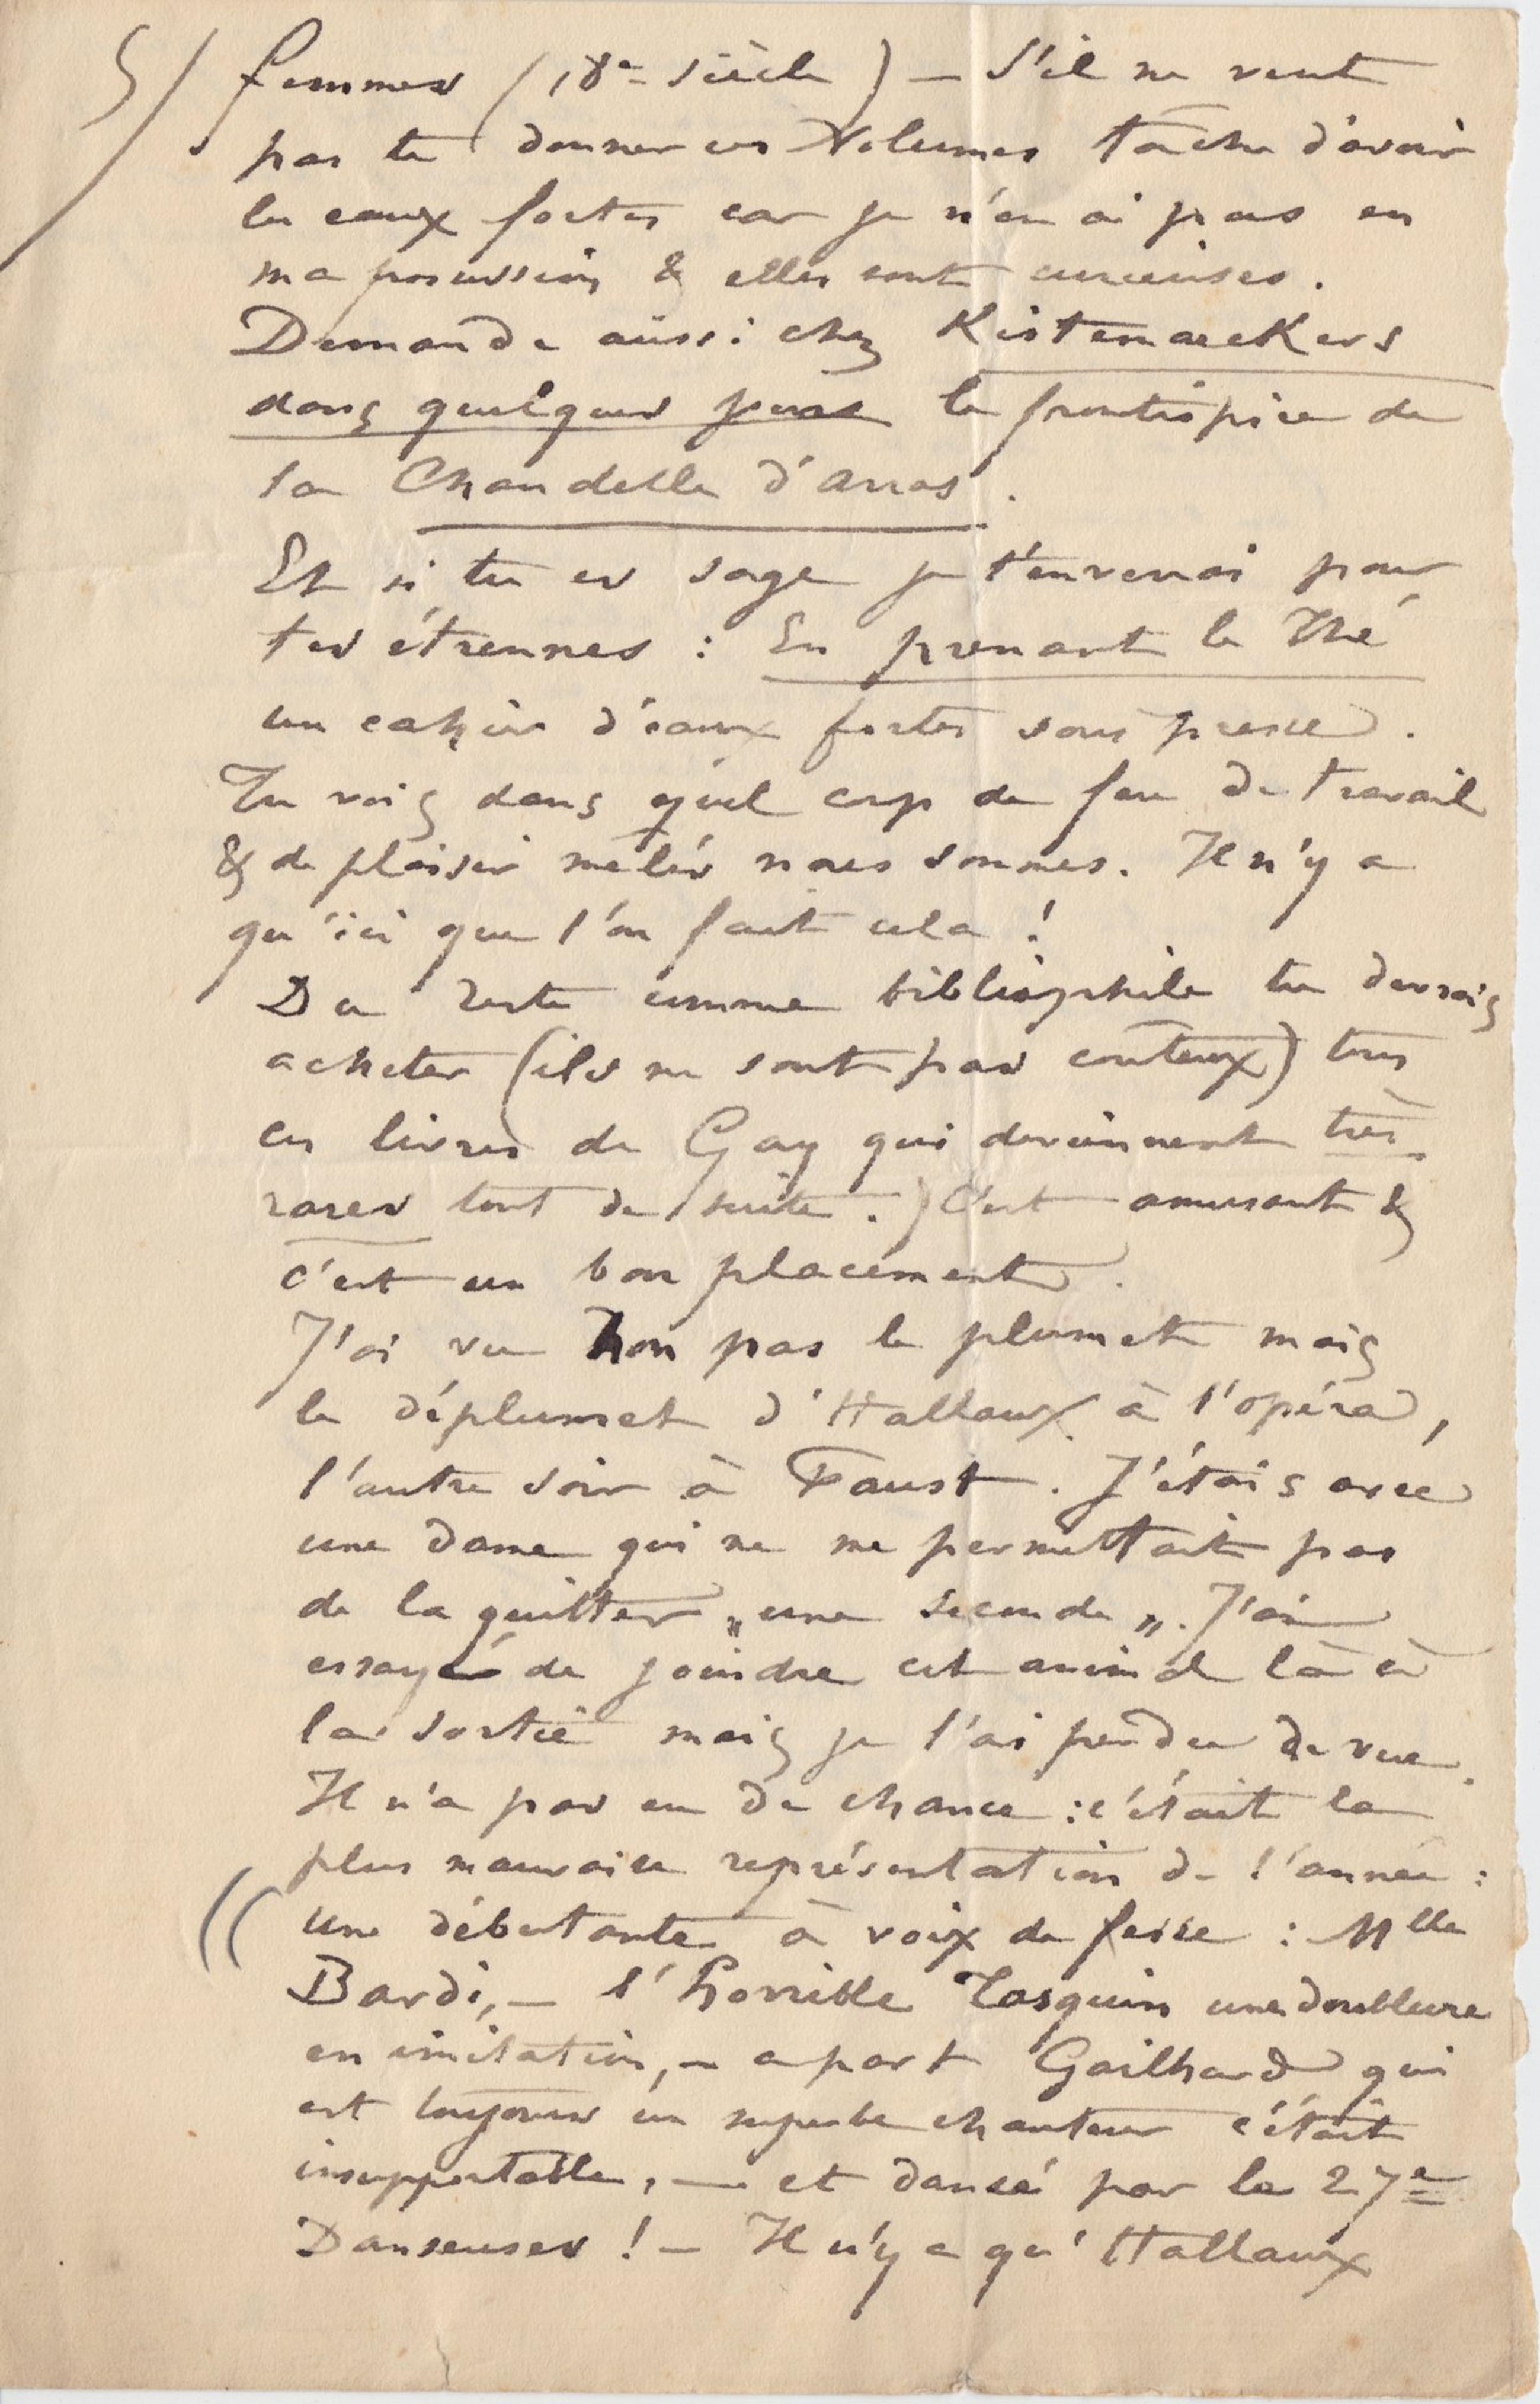 5/ femmes (18e siècle) — S'il ne veut
pas te donner ces Volumes tâche d'avoir
les eaux fortes car je n'en ai pas en
ma possession & elles sont curieuses.
Demande aussi chez Kistemaeckers
dans quelques jours le frontispice de
la Chandelle d'Arras.
Et si tu es sage je t'enverrai pour
tes étrennes : En prenant le Thé
un cahier d'eaux fortes sous presse.
Tu vois dans quel coup de feu de travail
& de plaisir mêlés nous sommes. Il n'y a
qu'ici que l'on fait cela !
Du reste comme bibliophile tu devrais
acheter (ils ne sont pas coûteux) tous
ces livres de Gay qui deviennent très
rares tout de suite.) C'est amusant &
c'est un bon placement.
J'ai vu Non pas le plumet mais
le déplumet d'Hallaux à l'opéra,
l'autre soir à Faust. J'étais avec
une dame qui ne me permettait pas
de la quitter „une seconde„. J'ai
essayé de joindre cet animal là à
la sortie mais je l'ai perdu de vue.
Il n'a pas eu de chance : c'était la
plus mauvaise représentation de l'année :
une débutante à voix de fesse : Mlle
Bardi, — l'horrible Tasquin une doublure
en imitation, — a part Gailhard qui
est toujours un superbe chanteur c'était
insupportable, — et dansé par les 27e
Danseuses ! — Il n'y a qu'Hallaux